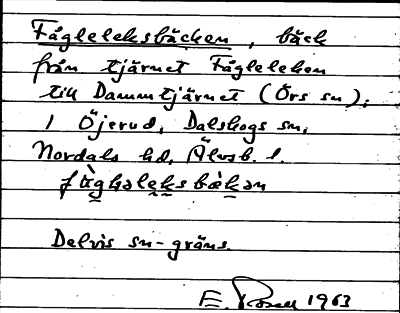 Fågleleksbäcken, bäck
från tjärnet Fågleleken
till Dammtjärnet (Örs sn);
i Öjerud, Dalskogs sn,
Nordals hd, Älvsb. l.
Delvis sn-gräns.
E. Rosell 1963